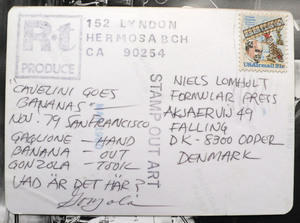 R+t
PRODUCE
152 LYNDON
HERMOSA BCH
CA 90254
USAirmail 31c
"CAVELINI GOES
BANANAS"
NOV. 79 SAN FRANCISCO
GAGLIONE — HAND
BANANA OUT
GONZOLA — TOOK
VAD ÄR DET HÄR?
STAMP OUT ART
NIELS LOMHOLT
FORMULAR PRESS
FALLING
DK-8300 ODDER
DENMARK